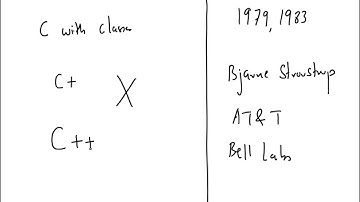 C with classes
C+ X
C++
1979, 1983
Bjarne Stroustrup
AT&T
Bell Labs